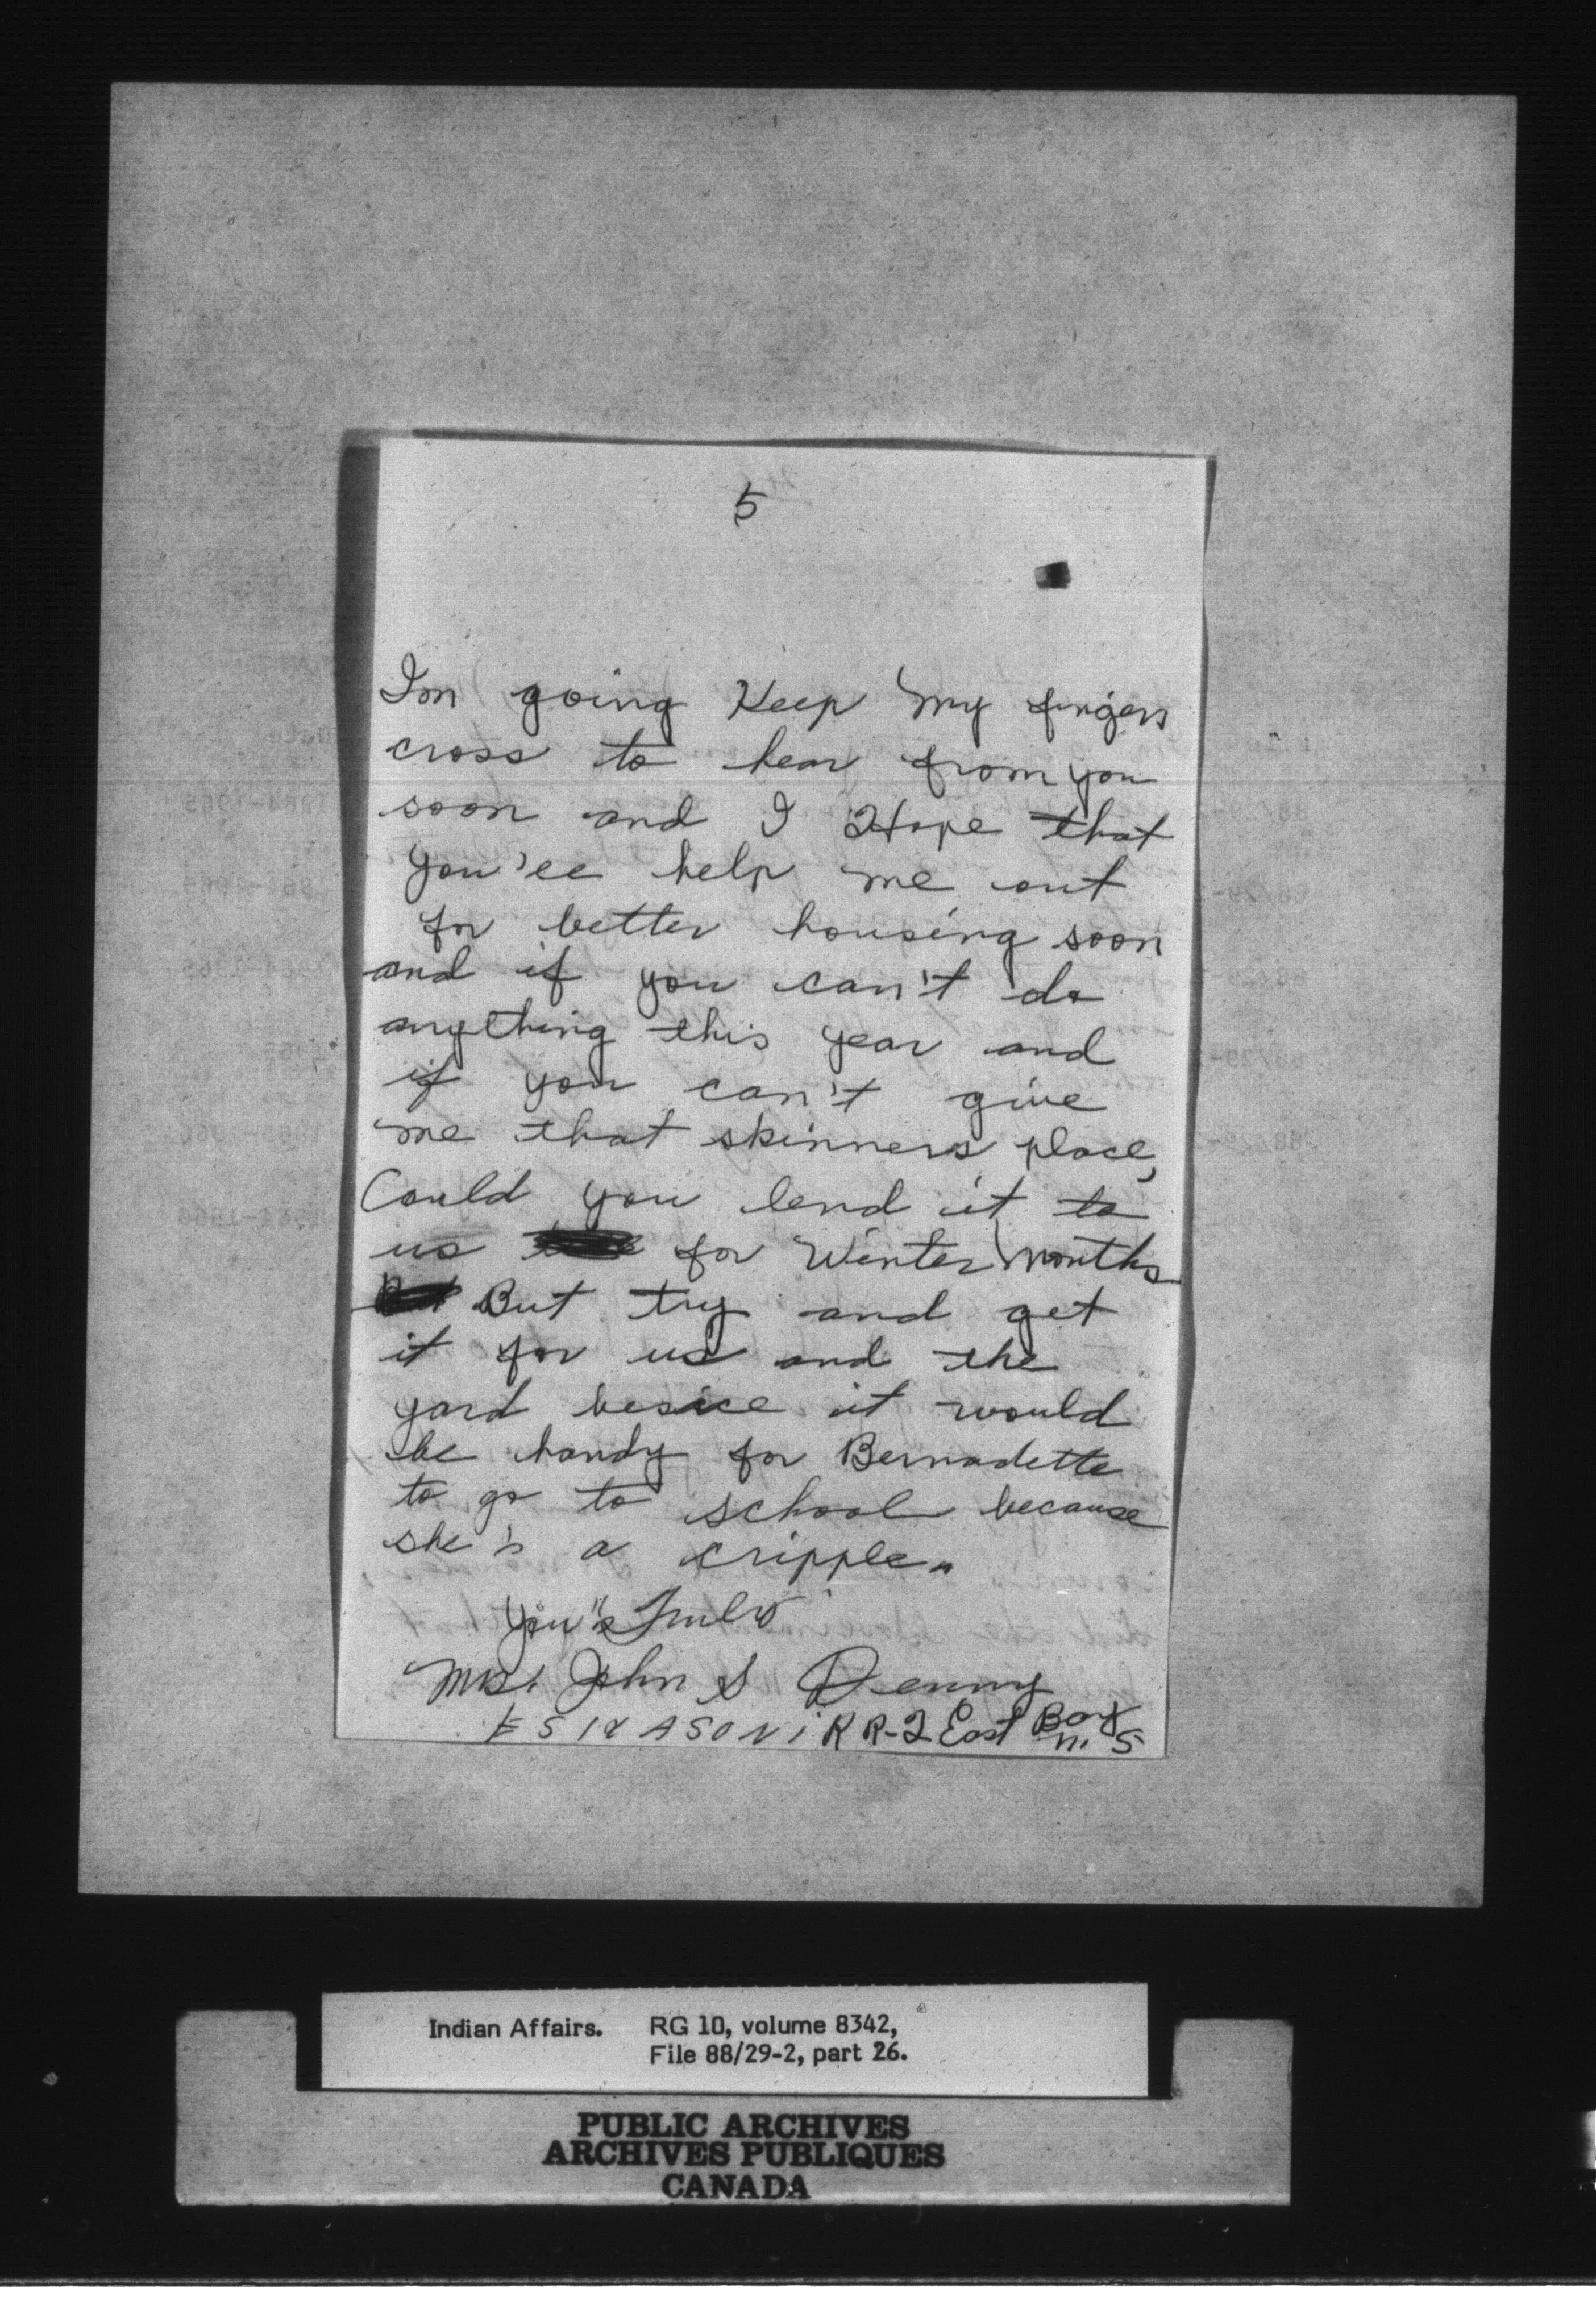 5
Im going Keep My fingers
cross to hear from you
soon and I Hope that
you'll help me out
for better housing soon
and if you can't do
anything this year and
if you can't give
me that skinners place,
Could you lend it to
us for Winter Months
But But try and get
it for us and the
yard besice it would
be handy for Bernadette
to go to school because
she's a cripple.
You"s Truly
Mrs. John S Denny
ESKASONI R R-2 East Bay
N. S
Indian Affairs. RG 10, volume 8342,
File 88/29-2, part 26.
PUBLIC ARCHIVES
ARCHIVES PUBLIQUES
CANADA